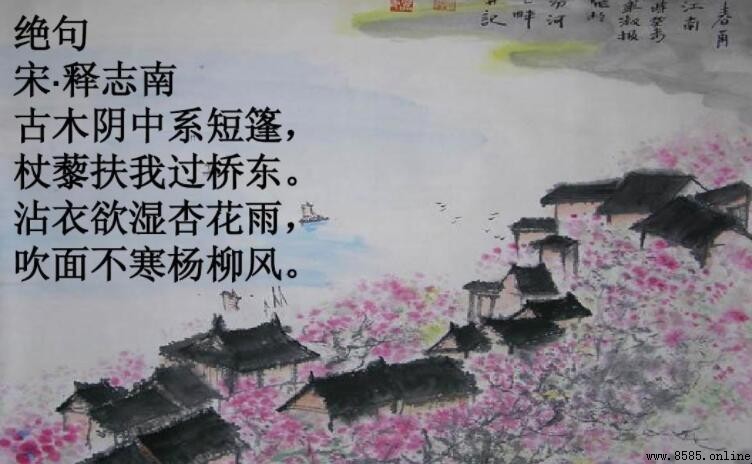 绝句
宋·释志南
古木阴中系短篷，
杖藜扶我过桥东。
沾衣欲湿杏花雨，
吹面不寒杨柳风。
www.8585.online